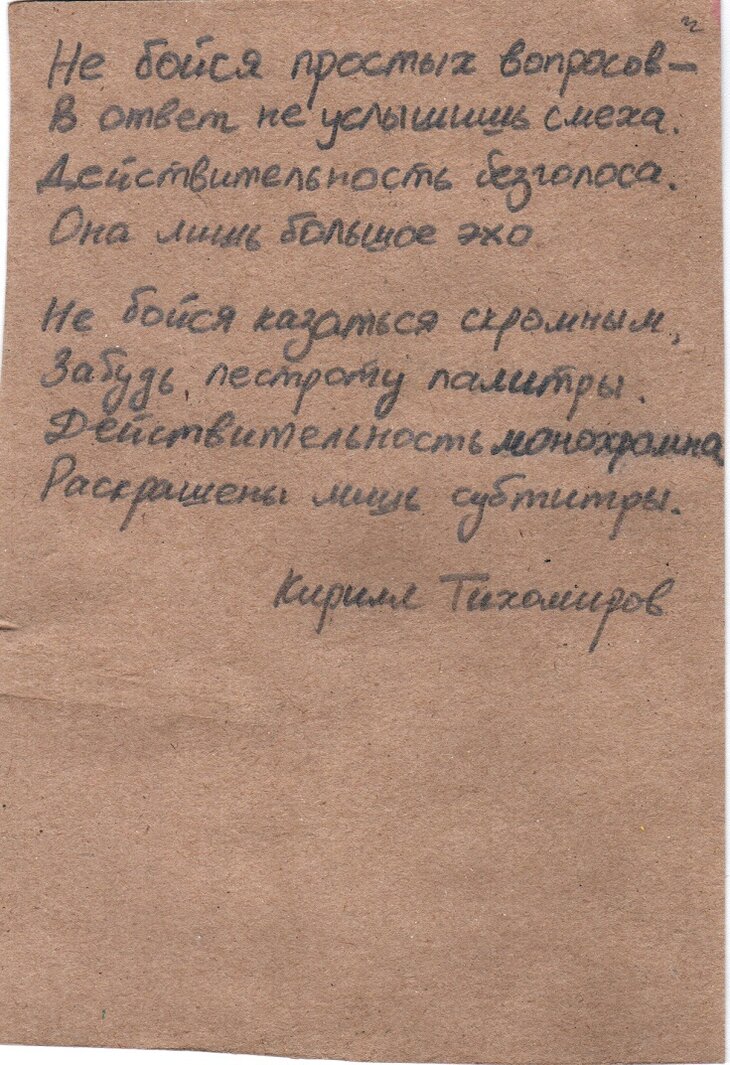 Не бойся простых вопросов–
В ответ не услышишь смеха.
Действительность безголоса.
Она лишь большое эхо
Не бойся казаться скромным,
Забудь пестроту палитры.
Действительность монохромна
Раскрашены лишь субтитры.
Кирилл Тихомиров